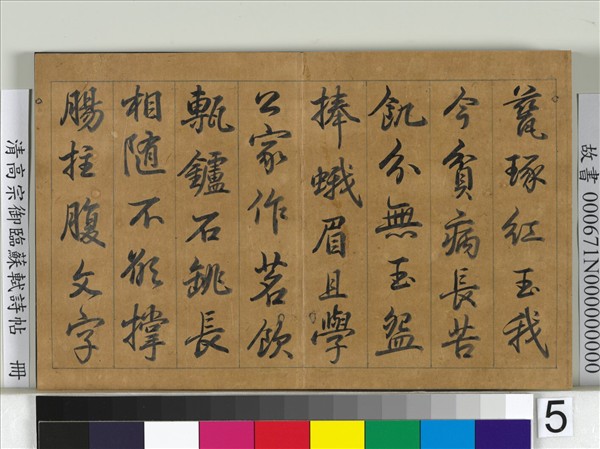 甆琢紅玉我
今貧病長苦
飢分無玉盌
捧蛾眉且學
公家作茗飲
甎鑪石銚長
相隨不欲撐
腸拄腹文字
故書 000671N000000000
清高宗御臨蘇軾詩帖 冊
5